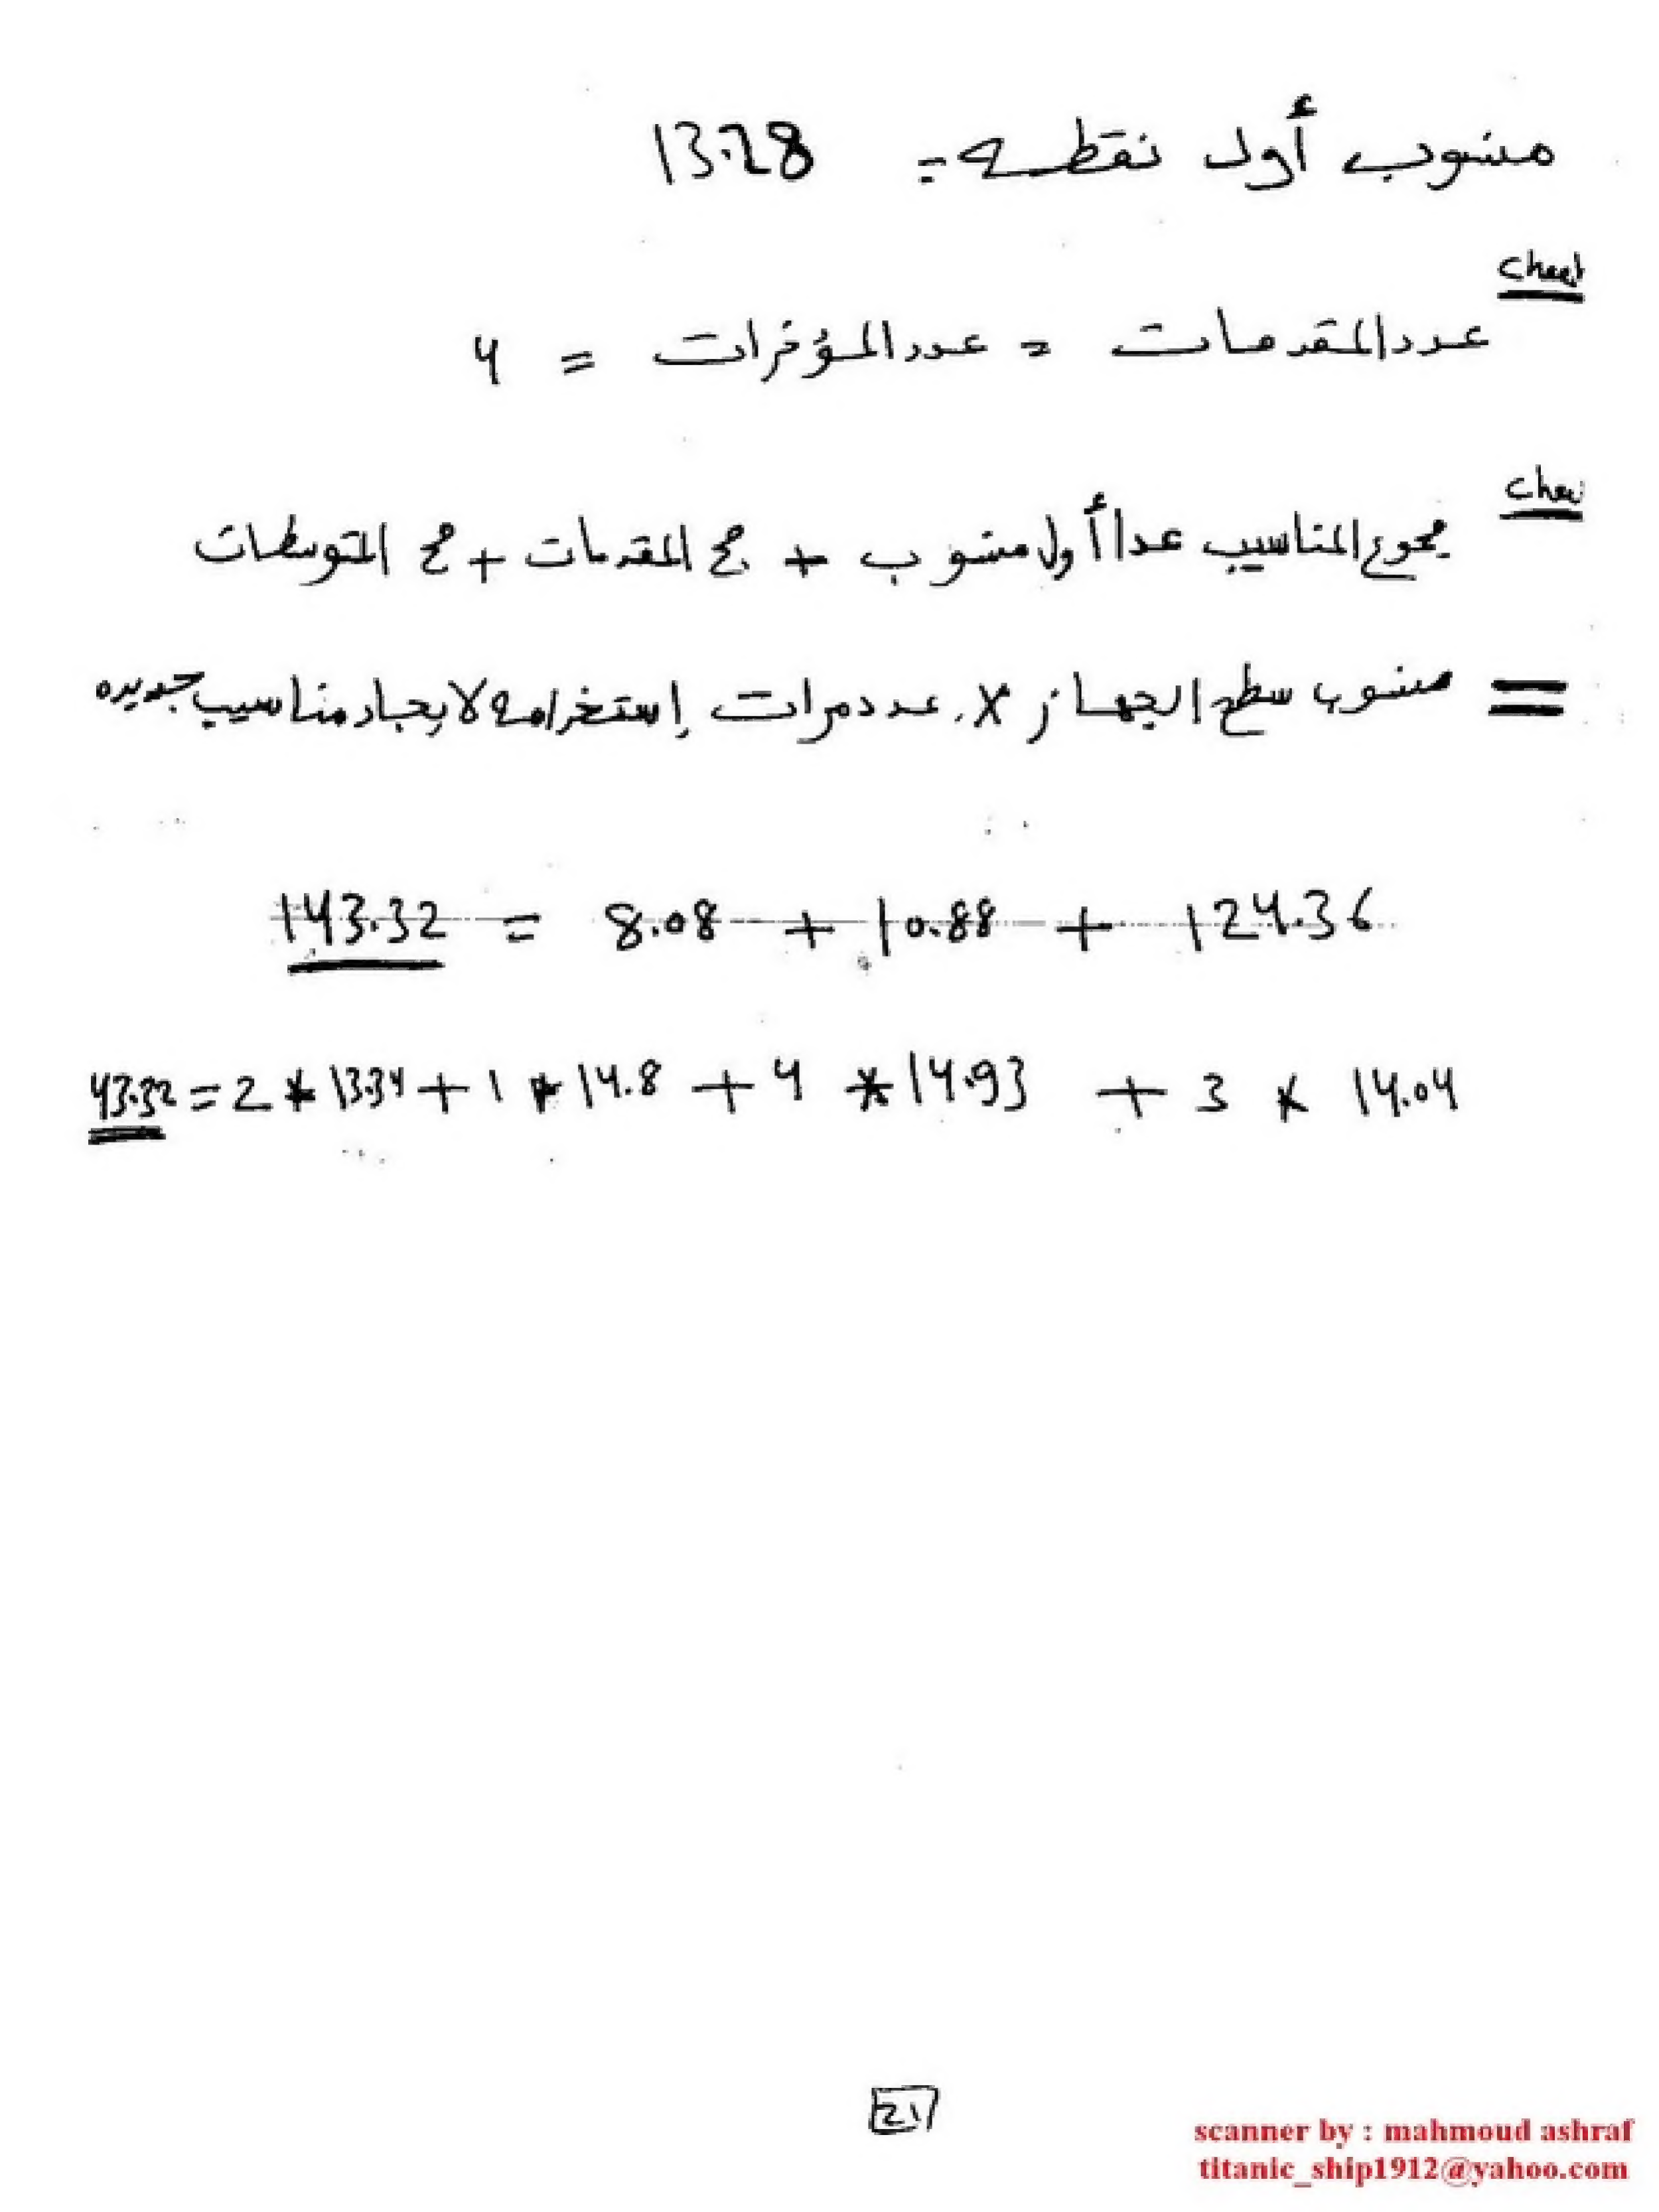 منسوب أول نقطه = 13.28
check
عدد المقدمات = عدد المؤخرات = 4
chec
مجموع المناسيب عدا أول منسوب + مج المقدمات + مج المتوسطات
= منسوب سطح الجهاز x عدد مرات إستخدامه لا يجاد مناسيب جديده
143.32 = 8.08 + 10.88 + 124.36
43.32 = 2 * 13.34 + 1 * 14.8 + 4 * 14.93 + 3 x 14.04
21
scanner by : mahmoud ashraf
titanic_ship1912@yahoo.com